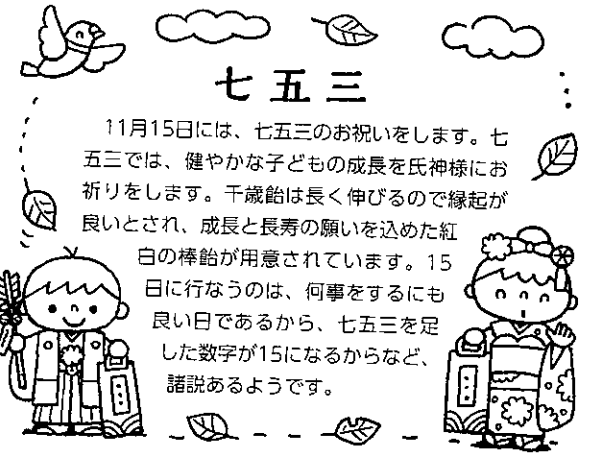 七五三
11月15日には、七五三のお祝いをします。七
五三では、健やかな子どもの成長を氏神様にお
祈りをします。千歳飴は長く伸びるので縁起が
良いとされ、成長と長寿の願いを込めた紅
白の棒飴が用意されています。15
日に行なうのは、何事をするにも
良い日であるから、七五三を足
した数字が15になるからなど、
諸説あるようです。